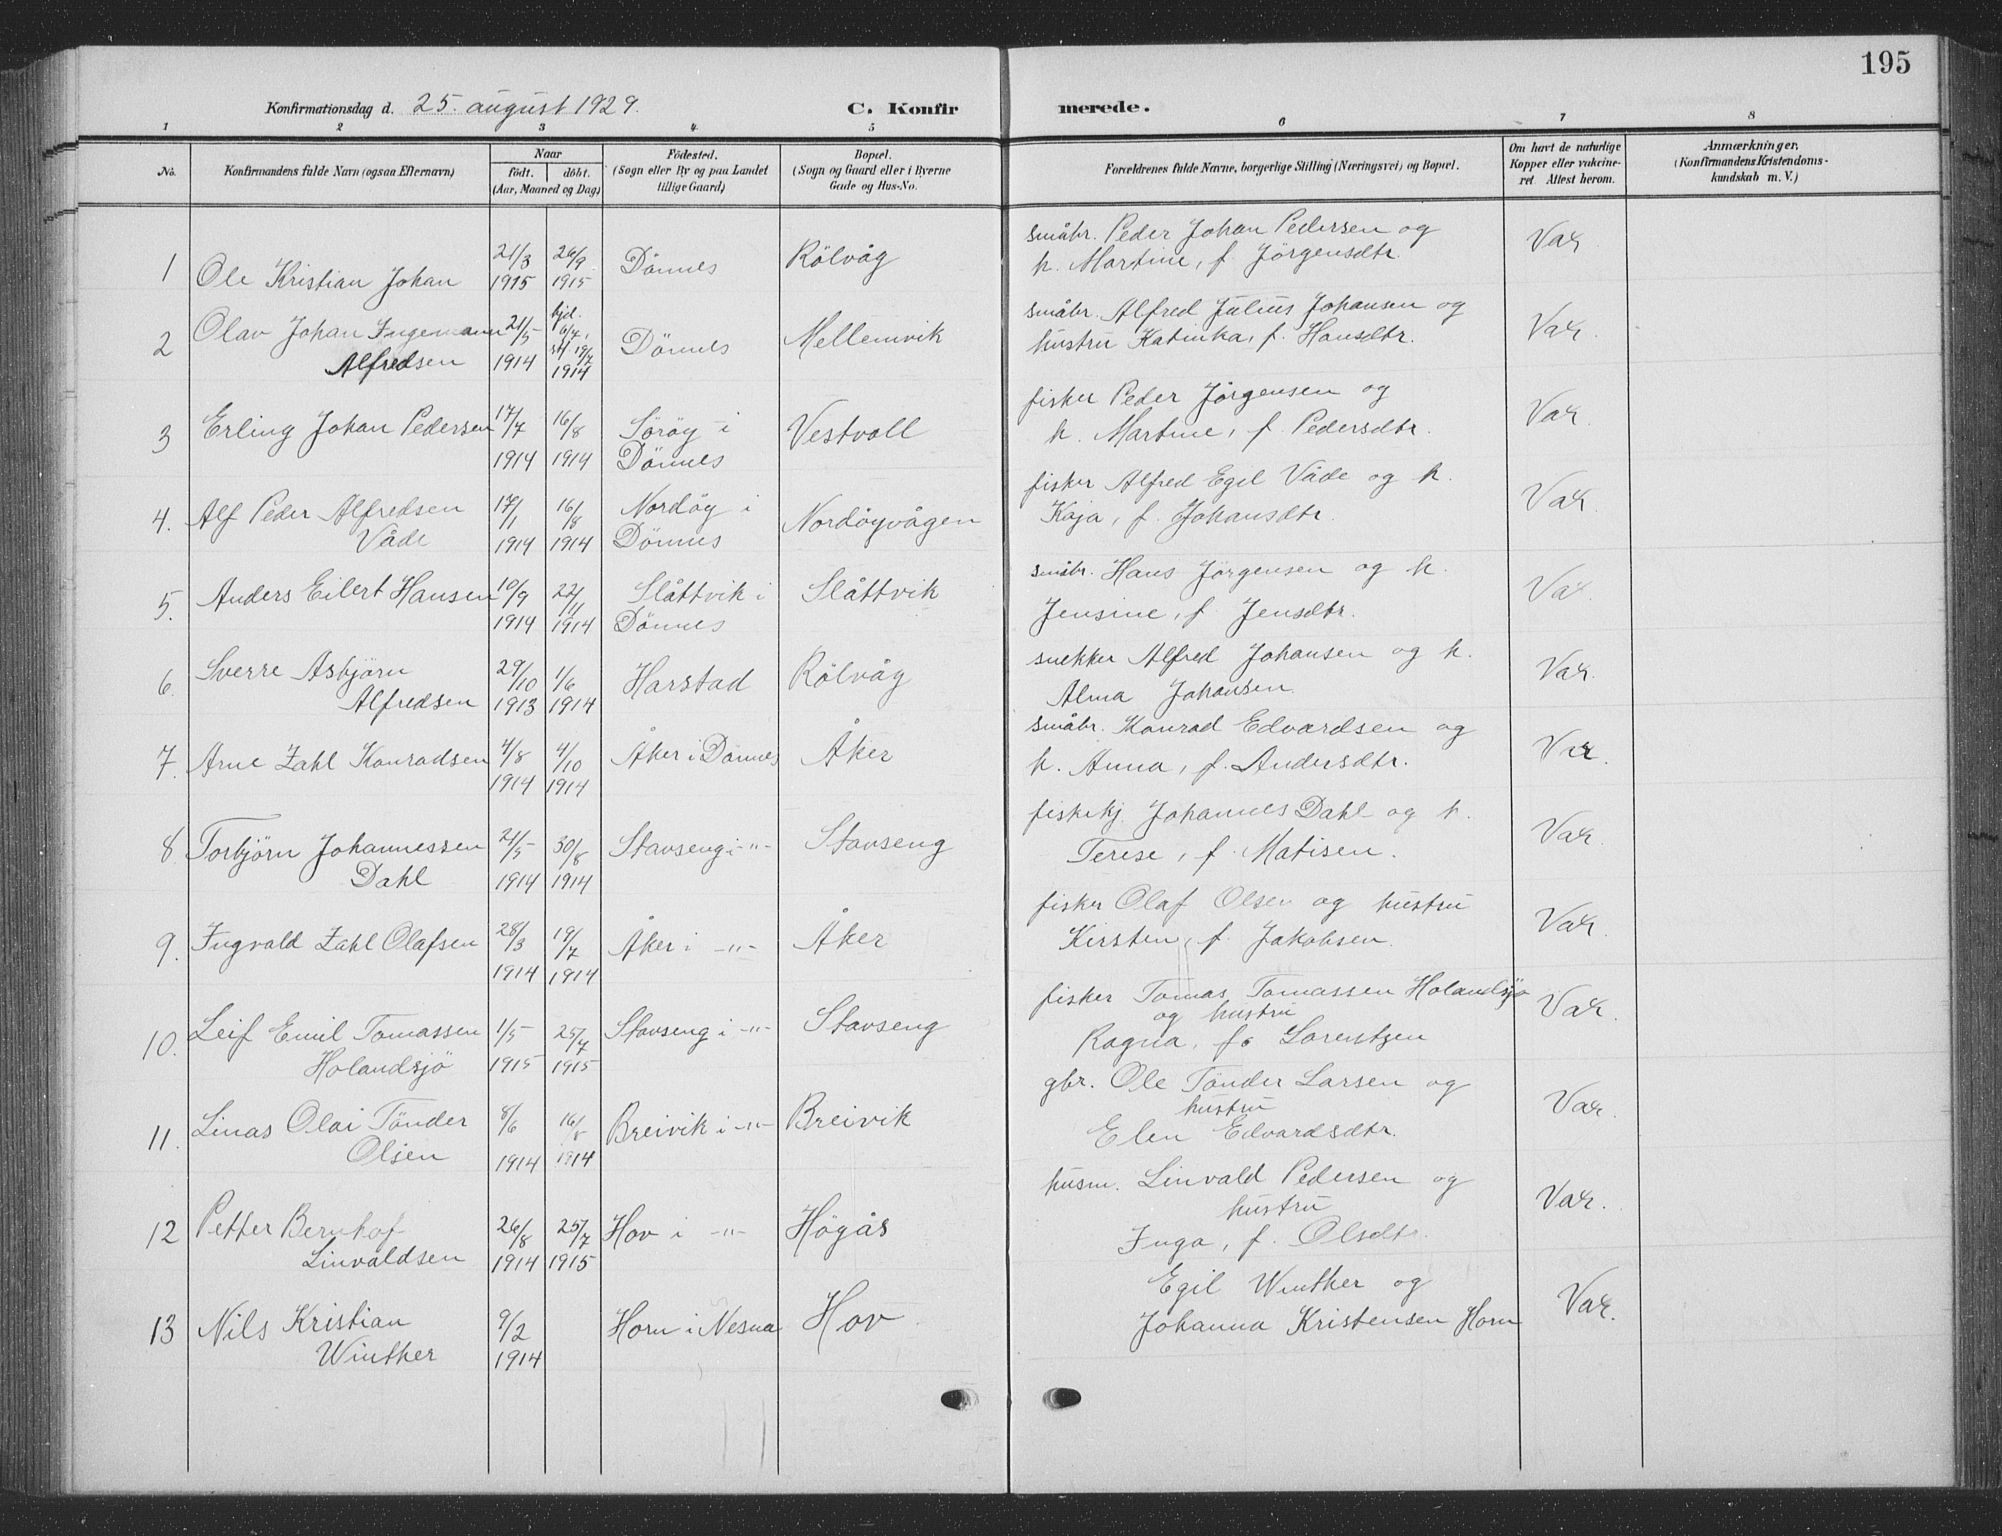 195
Konfirmationsdag d. 25. august 1929. C. Konfirmerede.
1 2 3 4. 5 6 7 8
No. Konfirmandens fulde Navn (ogsaa Efternavn) Naar født. døbt. (Aar, Maaned og Dag) Fødested. (Sogn eller By og paa Landet tillige Gaard) Bopæl. (Sogn og Gaard eller i Byerne Gade og Hus-No. Forældrenes fulde Navne, borgerlige Stilling (Næringsvei) og Bopæl. Om havt de naturlige Kopper eller vakcineret. Attest herom. Anmærkninger. (Konfirmandens Kristendomskundskab m. V.)
1 Ole Kristian Johan 21/3 1915 26/9 1915 Dönnes Rölvåg småbr. Peder Johan Pedersen og
h. Martine, f. Jörgensdtr. Var.
2 Olav Johan Ingemann 21/5 1914 hjd. 6/7, st. 19/7 1914 Dönnes Mellemvik småbr. Alfred Julius Johansen og
Alfredsen hustru Katinka, f. Hansdtr. Var.
3 Erling Johan Pedersen 17/7 1914 16/8 1914 Söröy i Dönnes Vestvoll fisker Peder Jörgensen og
h. Martine, f. Pedersdtr. Var.
4. Alf Peder Alfredsen 17/1 1914 16/8 1914 Nordöy i Dönnes Nordöyvågen fisker Alfred Egil Våde og h.
Våde Kaja, f. Johansdtr. Var.
5. Anders Eilert Hansen 10/9 1914 22/11 1914 Slåttvik i Dönnes Slåttvik småbr. Hans Jörgensen og h.
Jensine, f. Jensdtr. Var.
6. Sverre Asbjörn 29/10 1913 1/6 1914 Harstad Rölvåg snekker Alfred Johansen og h.
Alfredsen Alma Johansen. Var.
7. Arne Zahl Konradsen 4/8 1914 4/10 1914 Åker i Dönnes Åker småbr. Konrad Edvardsen og
h. Anna, f. Andersdtr. Var.
8 Torbjörn Johannessen 21/5 1914 30/8 1914 Stavseng i -"- Stavseng fiskekj. Johannes Dahl og h.
Dahl Terese, f. Matisen. Var.
9. Ingvald Zahl Olafsen 28/3 1914 19/7 1914 Åker i -"- Åker fisker Olaf Olsen og hustru
Kirsten, f. Jakobsen. Var.
10. Leif Emil Tomassen 1/5 1915 25/7 1915 Stavseng i -"- Stavseng fisker Tomas Tomassen Holandsjö
Holandsjö og hustru
Ragna, f. Lorentzen Var.
11. Linas Olai Tönder 8/6 1914 16/8 1914 Breivik i -"- Breivik gbr. Ole Tönder Larsen og
Olsen hustru
Elen Edvardsdtr. Var.
12 Petter Bernhof 26/8 1914 25/7 1915 Hov i -"- Högås husm. Linvald Pedersen og
Linvaldsen hustru
Inga, f. Olsdtr. Var.
13 Nils Kristian 9/2 1914 Horn i Nesna Hov Egil Winther og
Winther Johanna Kristensen Horn Var.